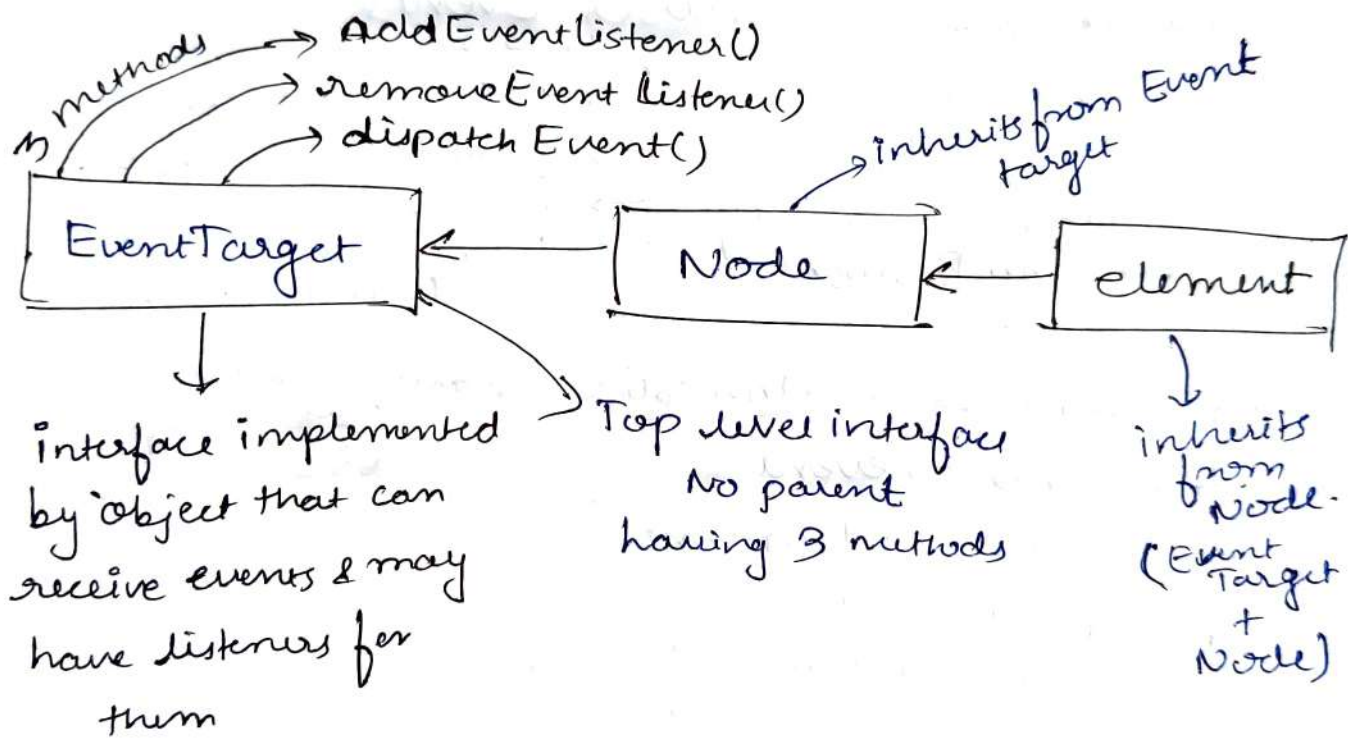 3 methods
AddEventListener()
removeEvent Listener()
dispatch Event()
inherits from Event
target
EventTarget
Node
element
interface implemented
by object that can
receive events & may
have listeners for
them
Top level interface
No parent
having 3 methods
inherits
from
Node.
(Event
Target
+
Node)